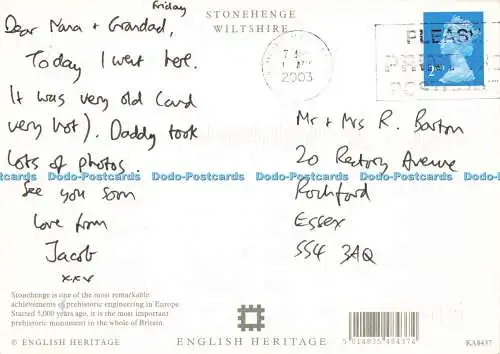 Friday
Dear Nana + Grandad,
Today I went here.
It was very old (and
very hot). Daddy took
lots of photos.
See you soon
love from
Jacob
xxx
STONEHENGE
WILTSHIRE
2003
PLEASE
2
Mr + Mrs R. Barton
20 Rectory Avenue
Rochford
Essex
SS4 3AQ
Dodo-Postcards Dodo-Postcards Dodo-Postcards Dodo-Postcards
Stonehenge is one of the most remarkable
achievements of prehistoric engineering in Europe.
Started 5,000 years ago, it is the most important
prehistoric monument in the whole of Britain.
© ENGLISH HERITAGE
ENGLISH HERITAGE
5 014835 484374
KA8437